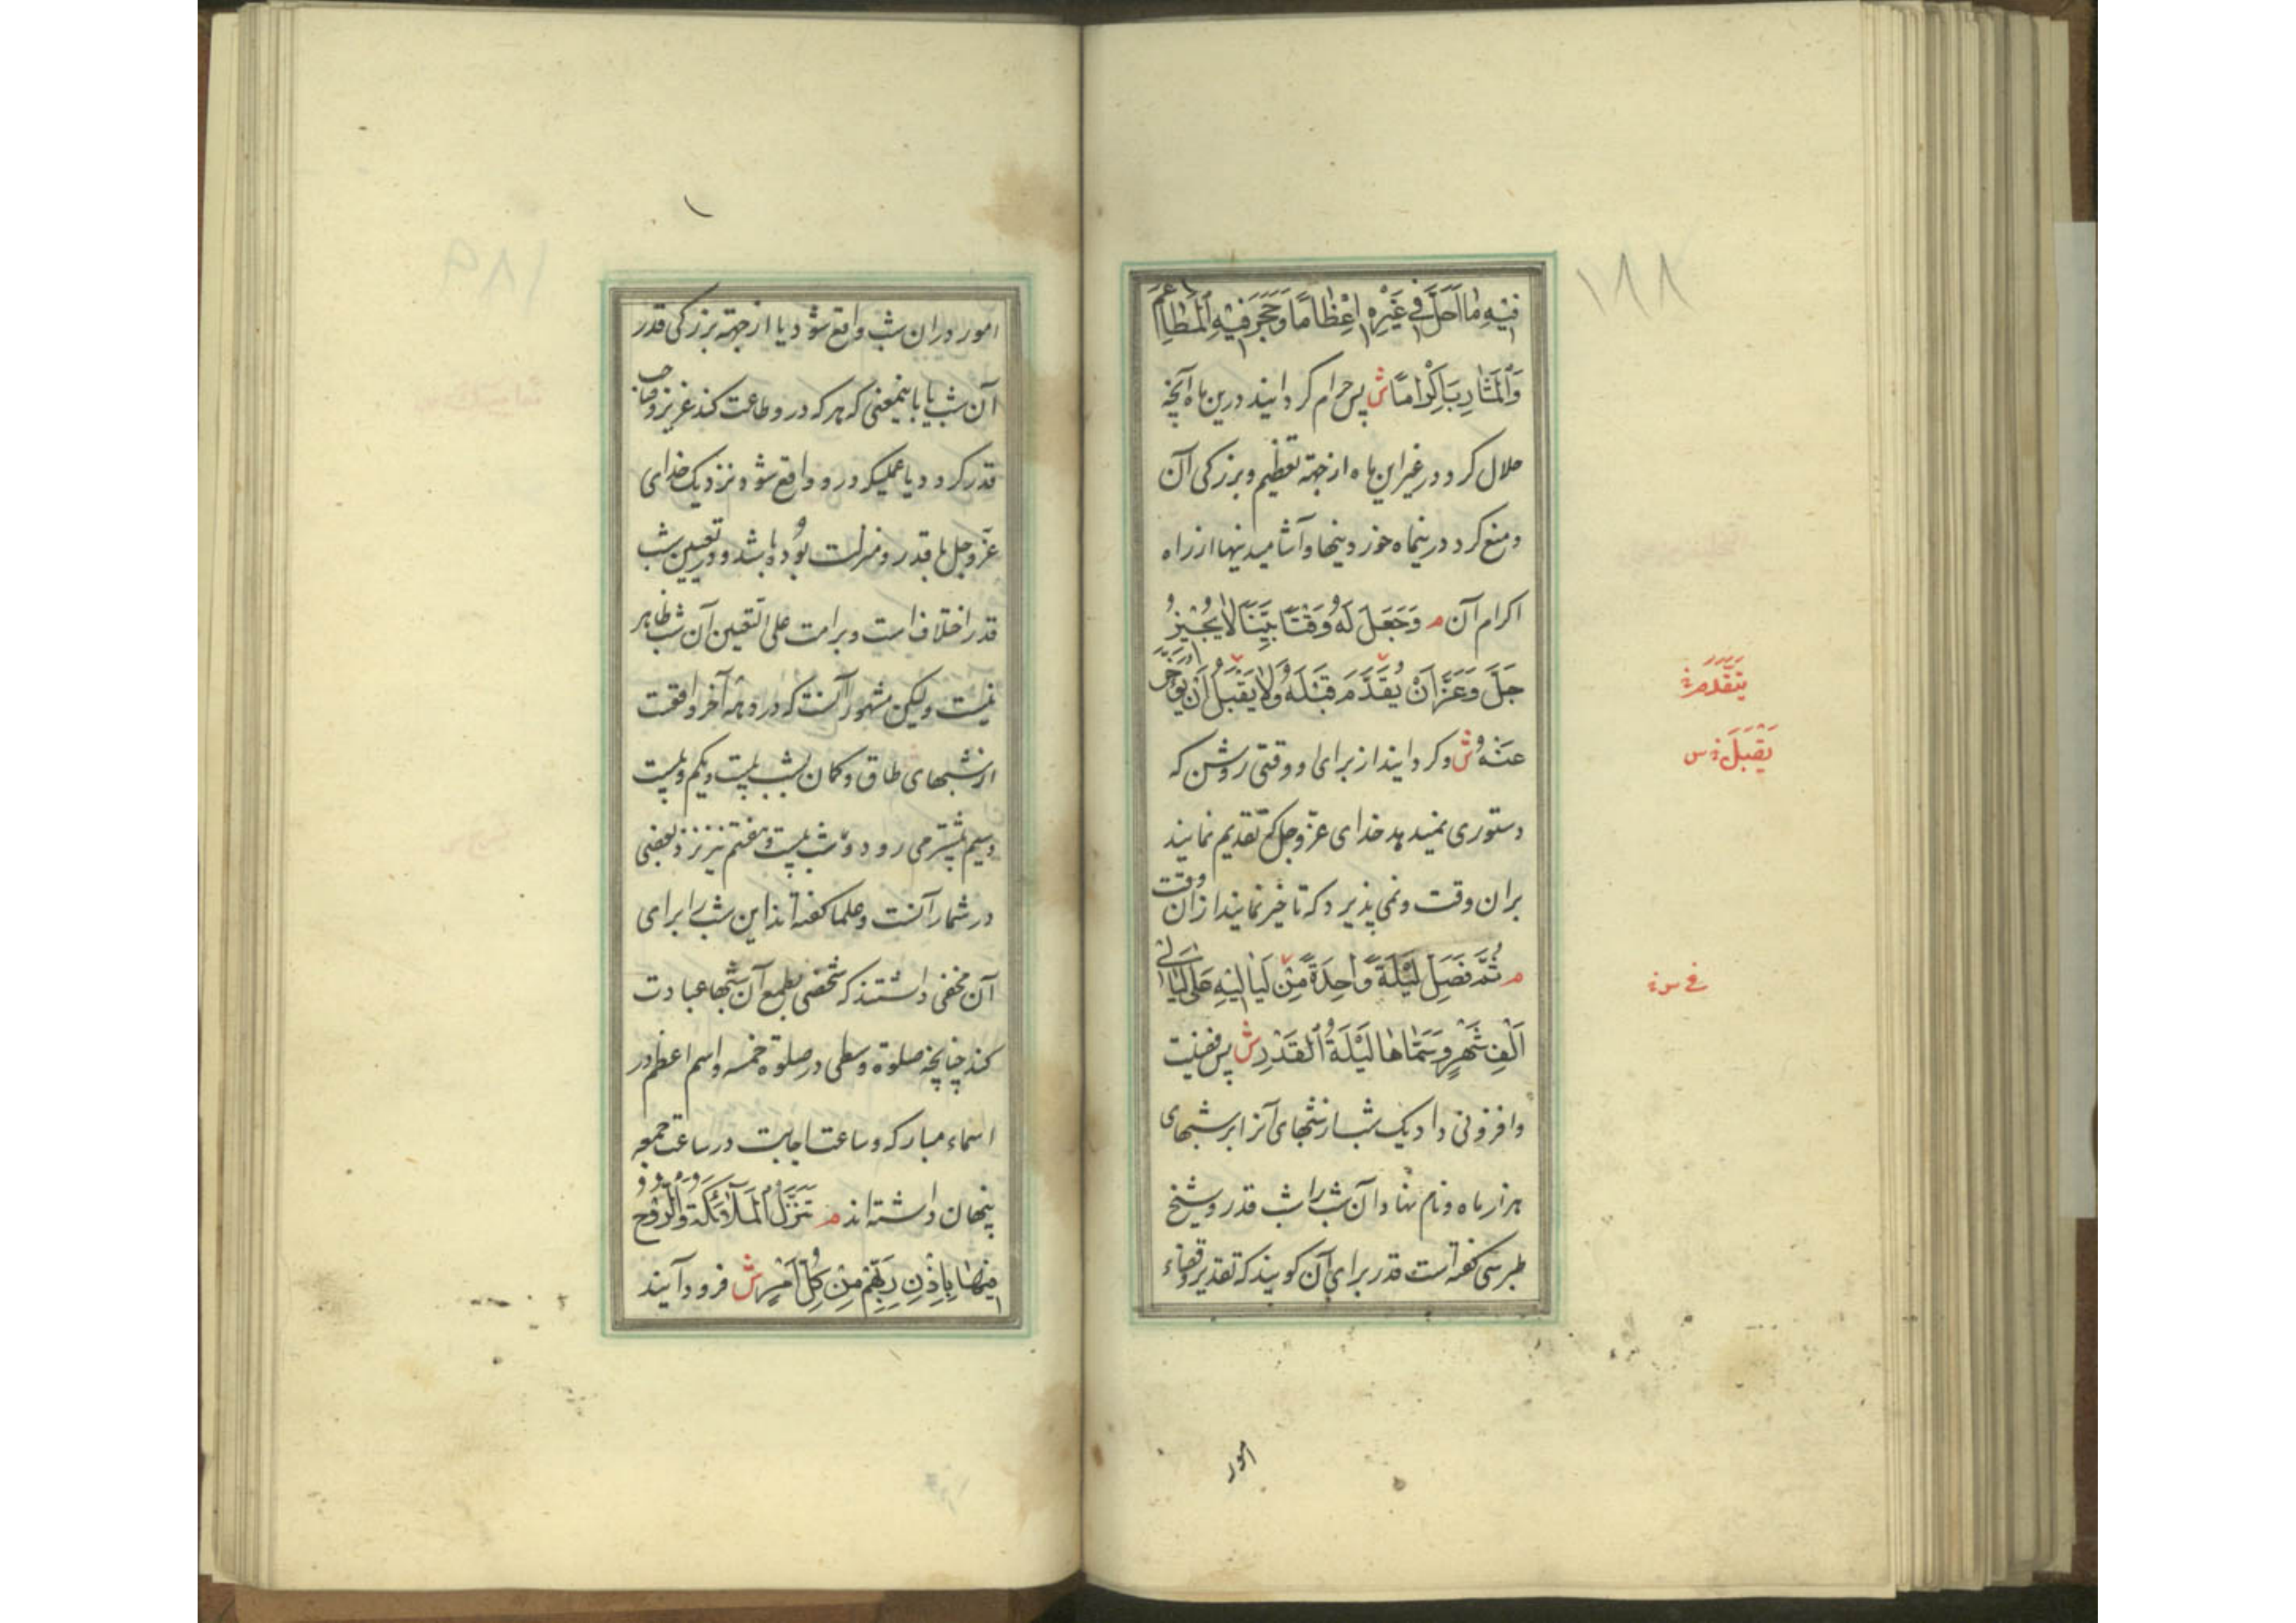 ١٨٨
فِيهِ مَا اَحَلَّ فِي غَيْرِهِ اِعْظَامًا وَحَجَرَ فِيهِ الْمَطَاعِمَ
وَالْمَشَارِبَ اِكْرَامًا ش پس حرام کردانید درین ماه آنچه
حلال کرد در غیر این ماه از جهته تعظیم و بزرکی آن
و منع کرد درینماه خوردنیها و آشامیدنیها از راه
اکرام آن م وَجَعَلَ لَهُ وَقْتًا بَيِّنًا لَا يُجِيزُ
جَلَّ وَعَزَّ اَنْ يُقَدَّمَ قَبْلَهُ وَلَا يَقْبَلُ اَنْ يُؤَخَّرَ
عَنْهُ ش و کردانید از برای او وقتی روشن که
دستوری نمیدهد خدای عزّ و جل که تقدیم نمایند
بران وقت و نمی پذیرد که تاخیر نمایند ازان وقت
م ثُمَّ فَضَّلَ لَيْلَةً وَاحِدَةً مِنْ لَيَالِيهِ عَلَى لَيَالِي
اَلْفِ شَهْرٍ وَسَمَّاهَا لَيْلَةَ الْقَدْرِ ش پس فضیلت
و افزونی داد یک شب از شبهای آنرا بر شبهای
هزار ماه و نام نهاد آن شب را شب قدر و شیخ
طبرسی کفته است قدر برای آن کویند که تقدیر و قضاء
امور
يَتَقَدَّمَ
يَقْبَلَ س
١٨٩
امور دران شب واقع شود یا از جهته بزرکی قدر
آن شب یا باینمعنی که هر که درو طاعت کند عزیز و صاحب
قدر کردد یا عملیکه درو واقع شود نزدیک خدای
عزّ و جل با قدر و منزلت بوده باشد و در تعیین شب
قدر اختلاف است و بر امت علی التعیین آن شب ظاهر
نیست ولیکن مشهور آنست که در دهه آخر واقعست
از شبهای طاق و کمان بشب بیست و یکم و بیست
و سیم بیشتر می رود و شب بیست و هفتم نیز نزد بعضی
در شمار آنست و علما کفته اند این شب را برای
آن مخفی داشتند که شخصی بطمع آن شبها عبادت
کند چنانچه صلوة وسطی در صلوة خمسه و اسم اعظم در
اسماء مبارکه و ساعت اجابت در ساعت جمعه
پنهان داشته اند م تَنَزَّلُ الْمَلَائِكَةُ وَالرُّوحُ
فِيهَا بِاِذْنِ رَبِّهِمْ مِنْ كُلِّ اَمْرٍ ش فرود آیند